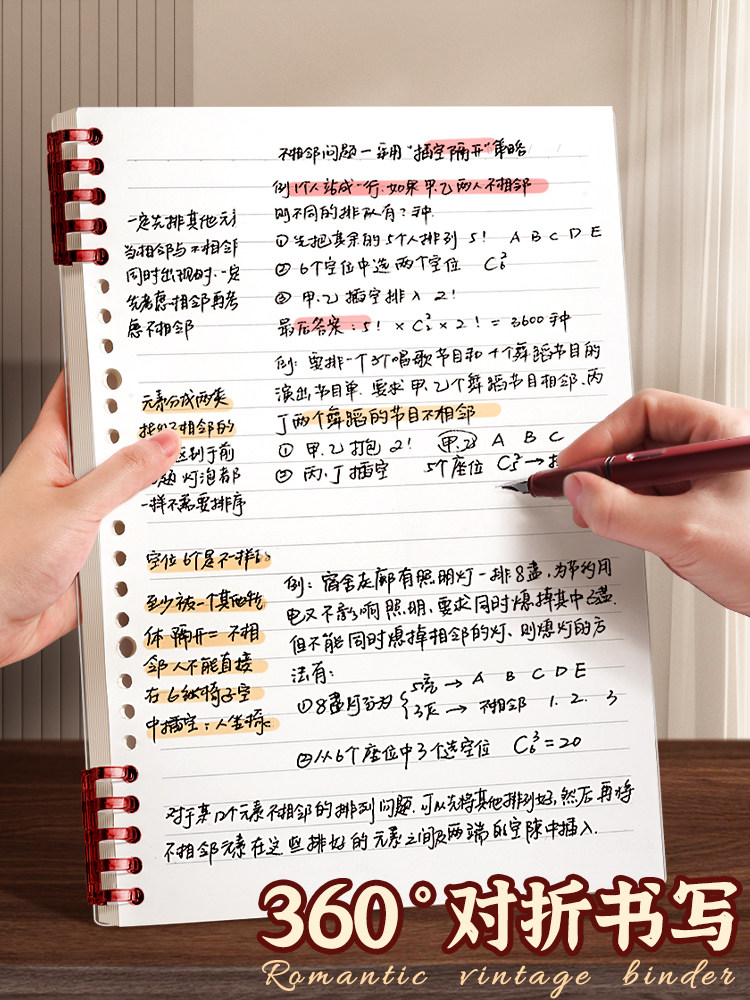 不相邻问题一采用"插空隔开"策略
例1人站成一行.如果甲.乙两人不相邻
则不同的排队有?种.
①先把其余的5个人排列 5! A B C D E
②6个空位中选两个空位 C₆²
③甲.乙插空排入 2!
最后答案:5! × C₆² × 2! = 3600种
例:要排一个3个唱歌节目和4个舞蹈节目的
演出节目单.要求甲.乙个舞蹈节目相邻.丙
丁两个舞蹈的节目不相邻
①甲.乙打包 2! 甲.乙 A B C
②丙.丁插空 5个座位 C₅² →
例:宿舍走廊有照明灯一排8盏,为节约用
电又不影响照明,要求同时熄掉其中3盏.
但不能同时熄掉相邻的灯、则熄灯的方
法有:
①8盏灯分为 5亮 → A B C D E
3灭 → 不相邻 1. 2. 3
②从6个座位中3个选空位 C₆³=20
一定先排其他元
当相邻与不相邻
同时出现时.一定
先考虑相邻再考
虑不相邻
元素分成两类
相邻的
区别于前
题 灯泡都
一样不需要排序
空位6个是不一样的
至少被一个其他物
体隔开=不相
邻人不能直接
在6张椅子空
中插空:人坐椅
对于某几个元素不相邻的排列问题.可以先将其他排列好,然后再将
不相邻元素在这些排好的元素之间及两端的空隙中插入.
360°对折书写
Romantic vintage binder